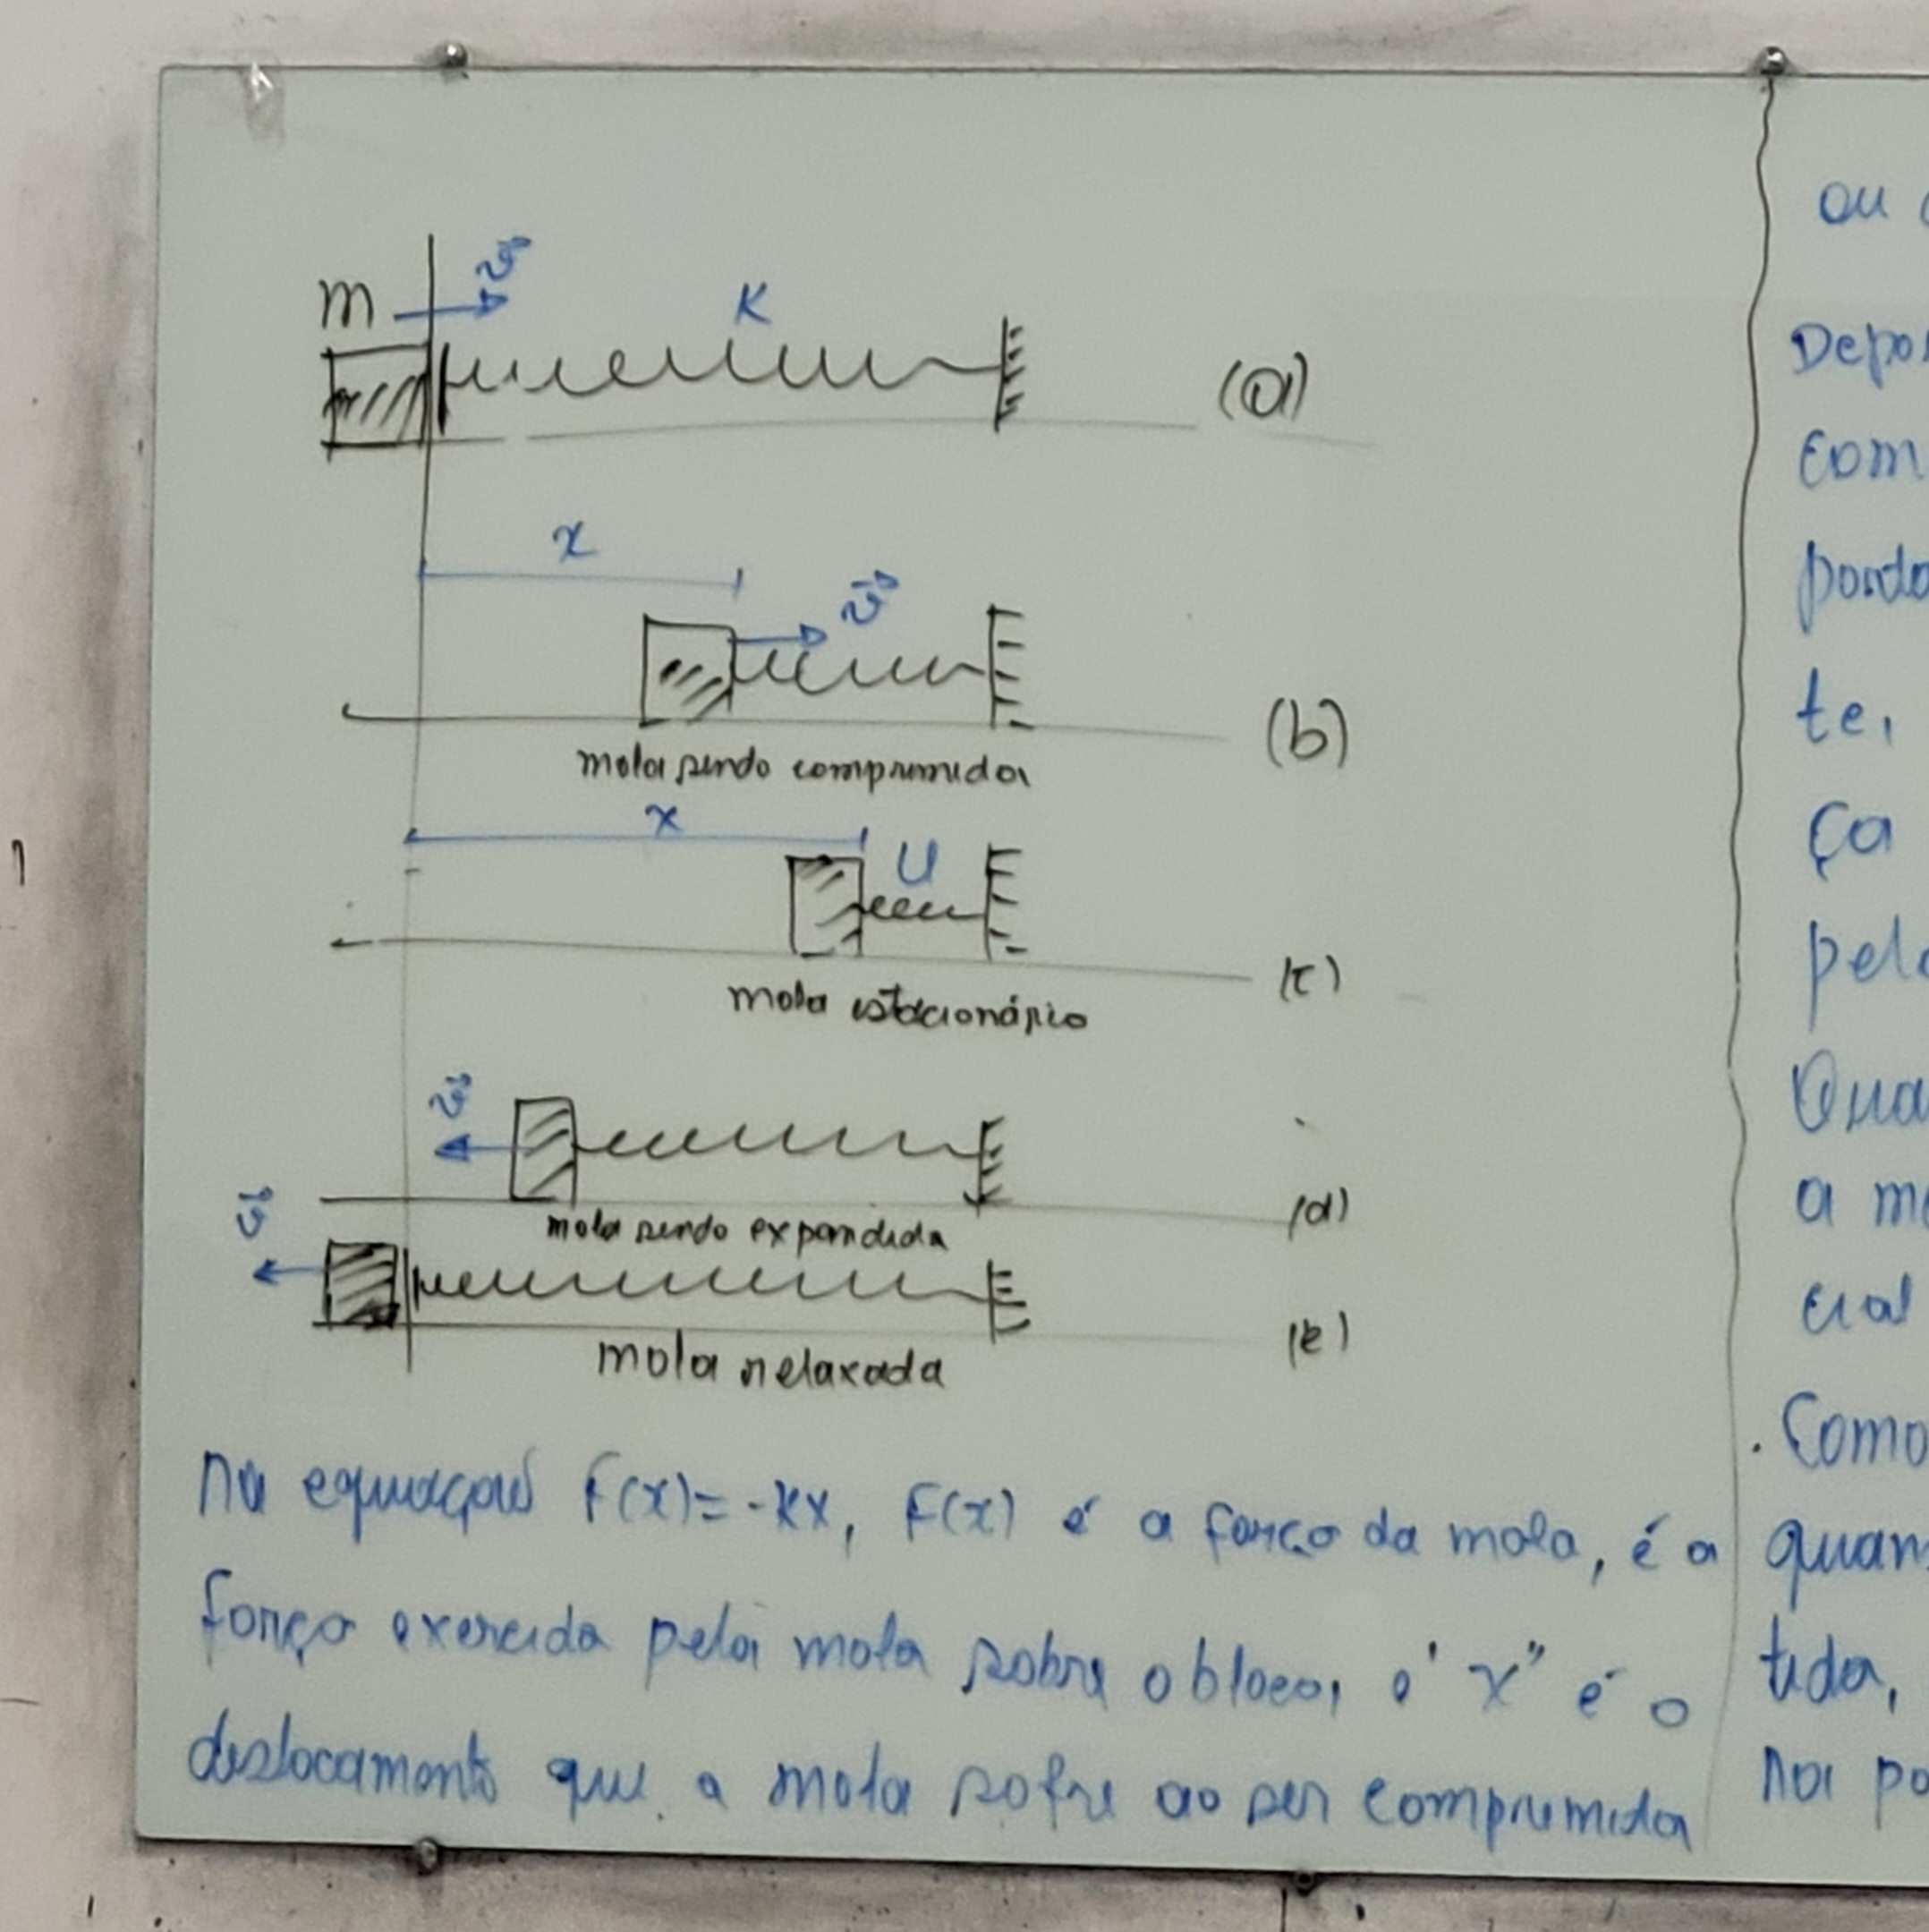 m v K
(a)
x
v
(b)
mola sendo comprimida
x
U
(c)
mola estacionário
v
(d)
mola sendo expandida
v
(e)
mola relaxada
Na equação F(x)=-Kx, F(x) é a força da mola, é a
força exercida pela mola sobre o bloco, e "x" é o
deslocamento que a mola sofre ao ser comprimida
ou
Depo
com
te,
ça
pel
Qua
a m
cial
. Como
quan
tida,
na po